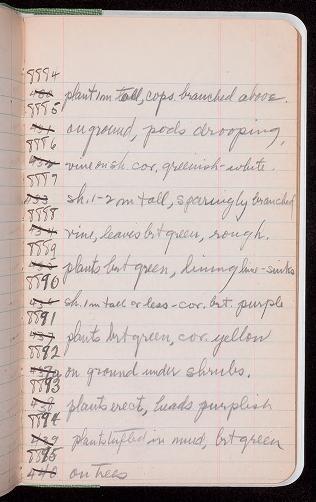 8884
plant 1m tall, cops. branched above.
8885
on ground, pods drooping,
8886
vine on sh. cor. greenish-white.
8887
sh. 1-2 m tall, sparingly branched
8888
vine, leaves brt green, rough.
8889
plants brt green, lining lime-sinks
8890
sh. 1m tall or less - cor. brt. purple
8891
plants brt green, cor. yellow
8892
on ground under shrubs.
8893
plants erect, heads purplish
8894
plants tufted in mud, brt green
8895
on trees